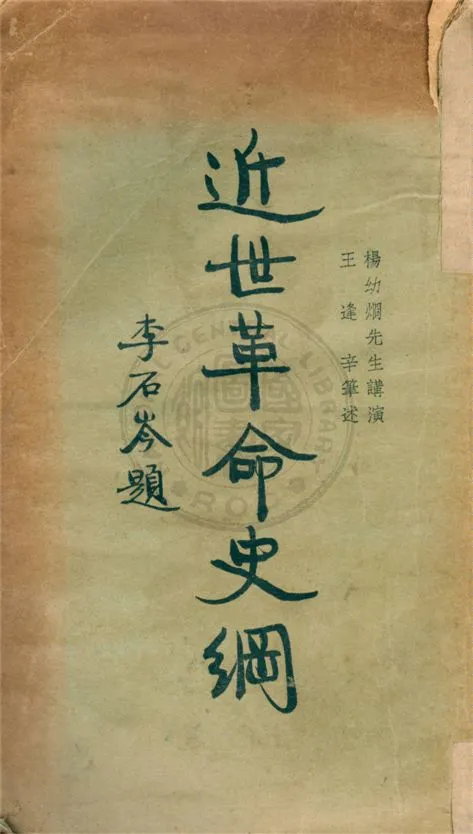 楊幼烱先生講演
王逢辛筆述
近世革命史綱
李石岑題
GENERAL LIBRARY